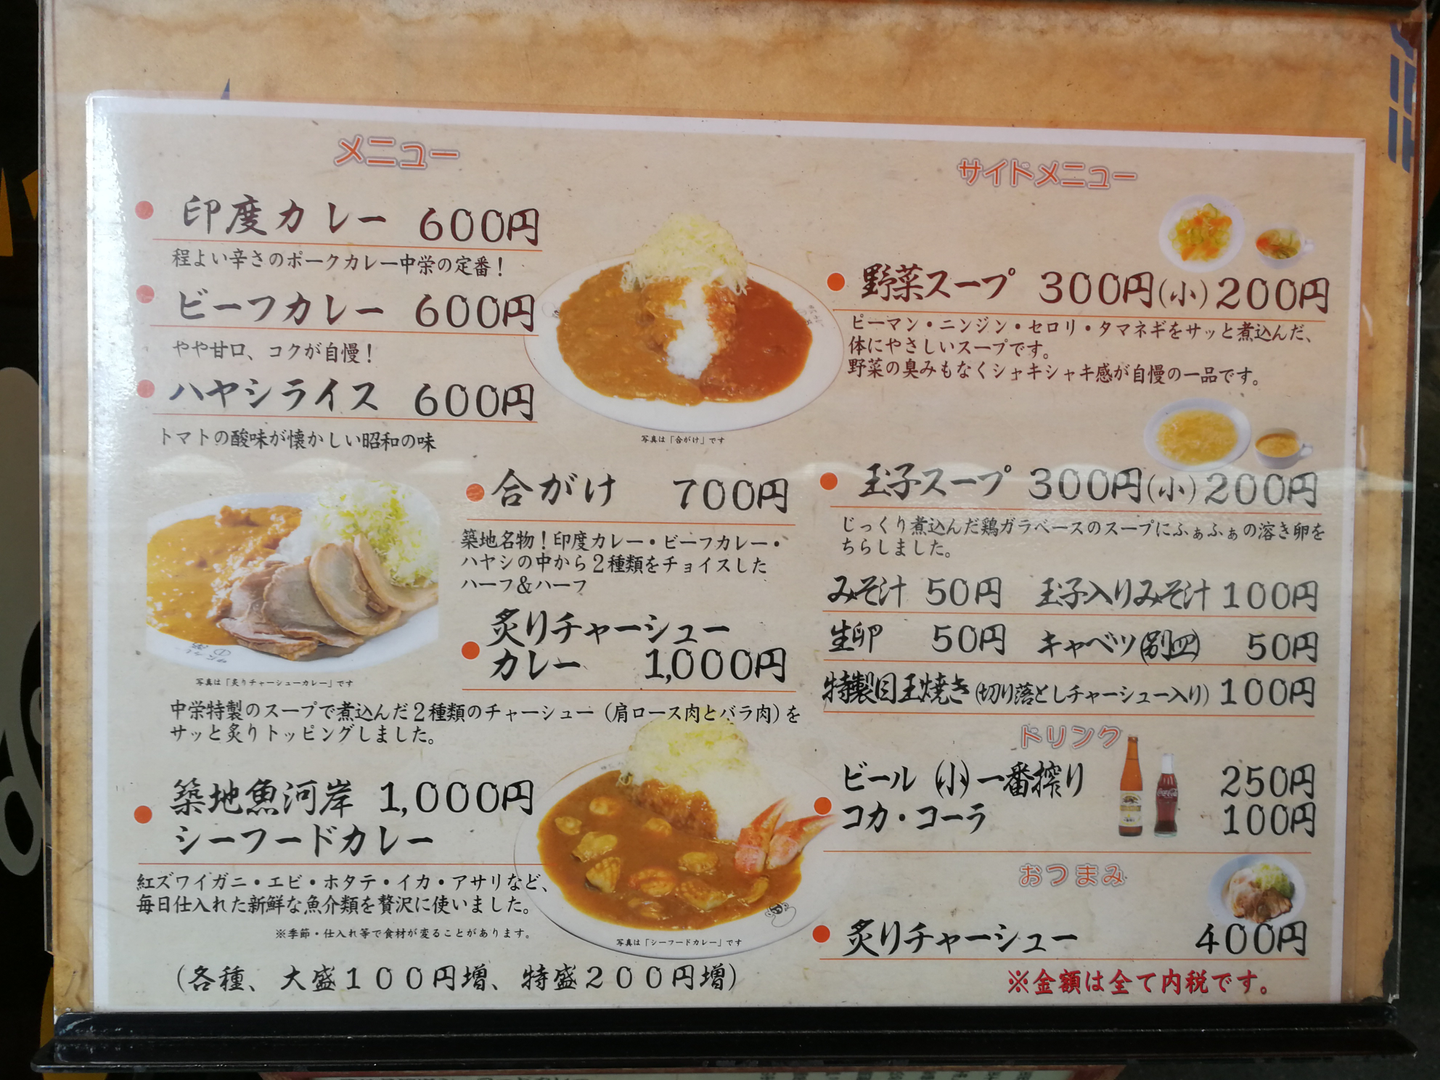 メニュー
印度カレー 600円
程よい辛さのポークカレー中栄の定番!
ビーフカレー 600円
やや甘口、コクが自慢!
ハヤシライス 600円
トマトの酸味が懐かしい昭和の味
写真は「合がけ」です
合がけ 700円
築地名物!印度カレー・ビーフカレー・
ハヤシの中から2種類をチョイスした
ハーフ&ハーフ
炙りチャーシュー
カレー 1,000円
写真は「炙りチャーシューカレー」です
中栄特製のスープで煮込んだ2種類のチャーシュー(肩ロース肉とバラ肉)を
サッと炙りトッピングしました。
築地魚河岸 1,000円
シーフードカレー
紅ズワイガニ・エビ・ホタテ・イカ・アサリなど、
毎日仕入れた新鮮な魚介類を贅沢に使いました。
※季節・仕入れ等で食材が変ることがあります。
写真は「シーフードカレー」です
(各種、大盛100円増、特盛200円増)
サイドメニュー
野菜スープ 300円(小)200円
ピーマン・ニンジン・セロリ・タマネギをサッと煮込んだ、
体にやさしいスープです。
野菜の臭みもなくシャキシャキ感が自慢の一品です。
玉子スープ 300円(小)200円
じっくり煮込んだ鶏ガラベースのスープにふぁふぁの溶き卵を
ちらしました。
みそ汁 50円 玉子入りみそ汁 100円
生卵 50円 キャベツ(別皿) 50円
特製目玉焼き(切り落としチャーシュー入り) 100円
ドリンク
ビール (小)一番搾り 250円
コカ・コーラ 100円
おつまみ
炙りチャーシュー 400円
※金額は全て内税です。